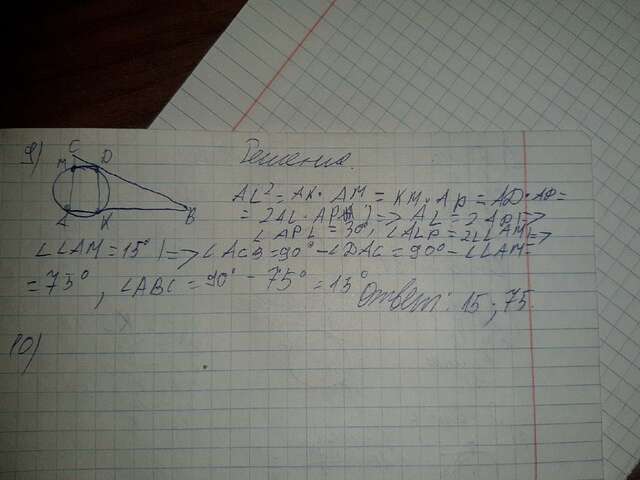 9)
C
M D
A K B
Решение.
AL² = AK · AM = KM · AP = AD · AP =
= 2AL · AP |) => AL = 2AP |=>
∠APL = 30°, ∠ALP = 2∠LAM |=>
∠LAM = 15° | => ∠ACB = 90° - ∠DAC = 90° - ∠LAM =
= 75°, ∠ABC = 90° - 75° = 15°
Ответ: 15 ; 75.
10)